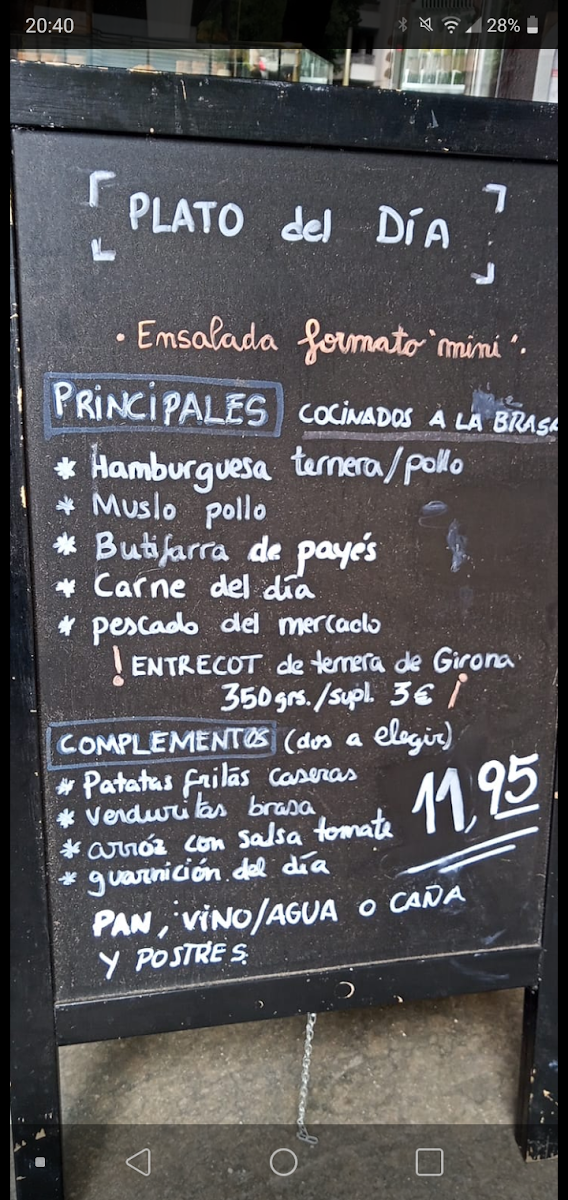 20:40
28%
PLATO del DÍA
• Ensalada formato "mini".
PRINCIPALES COCINADOS A LA BRASA
* Hamburguesa ternera/pollo
* Muslo pollo
* Butifarra de payés
* Carne del día
* pescado del mercado
! ENTRECOT de ternera de Girona
350 grs./supl. 3€ !
COMPLEMENTOS (dos a elegir)
* Patatas fritas caseras
* verduritas brasa
* arróz con salsa tomate
* guarnición del día
11,95
PAN, VINO/AGUA O CAÑA
Y POSTRES.